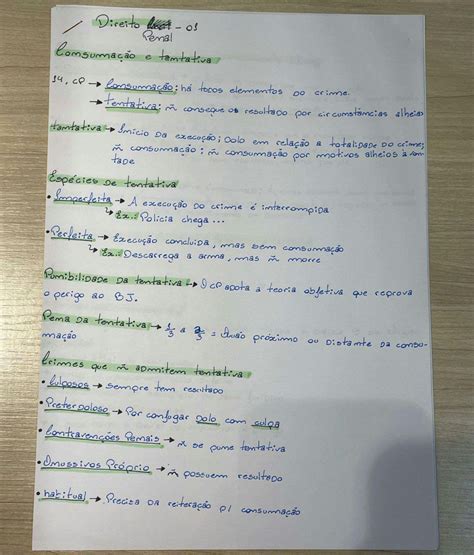 Direito - 01
Penal
Consumação e tentativa
14, CP → Consumação: há todos elementos do crime.
→ tentativa: ñ consegue os resultado por circumstâncias alheias
tentativa → Início da execução; Dolo em relação a totalidade do crime;
ñ consumação; ñ consumação por motivos alheios à von
tade
Espécies de tentativa
• Imperfeita → A execução do crime é interrompida
↳ Ex.: Polícia chega...
• Perfeita → Execução concluída, mas sem consumação
↳ Ex.: Descarrega a arma, mas ñ morre
Punibilidade da tentativa → O CP adota a teoria objetiva que reprova
o perigo ao BJ.
Pena da tentativa → 1/3 a 2/3 = Quão próximo ou distante da consu-
mação
Crimes que ñ admitem tentativa
• Culposos → sempre tem resultado
• Preterdoloso → Por conjugar dolo com culpa
• Contravenções Penais → ñ se pune tentativa
• Omissivos Próprio → ñ possuem resultado
• habitual → Precisa da reiteração p/ consumação